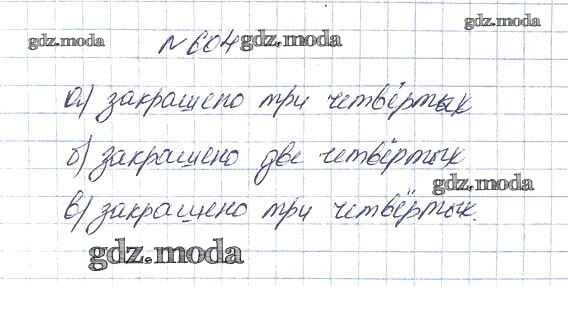 gdz.moda
gdz.moda
№ 604 gdz.moda
а) закрашено три четвёртык
б) закрашено две четвёртык
gdz.moda
в) закрашено три четвёртык.
gdz.moda